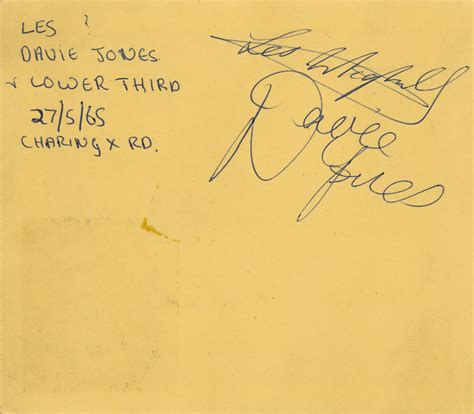 LES ?
DAVIE JONES
+ LOWER THIRD
27/5/65
CHARING X RD.
Les
Davie
Jones